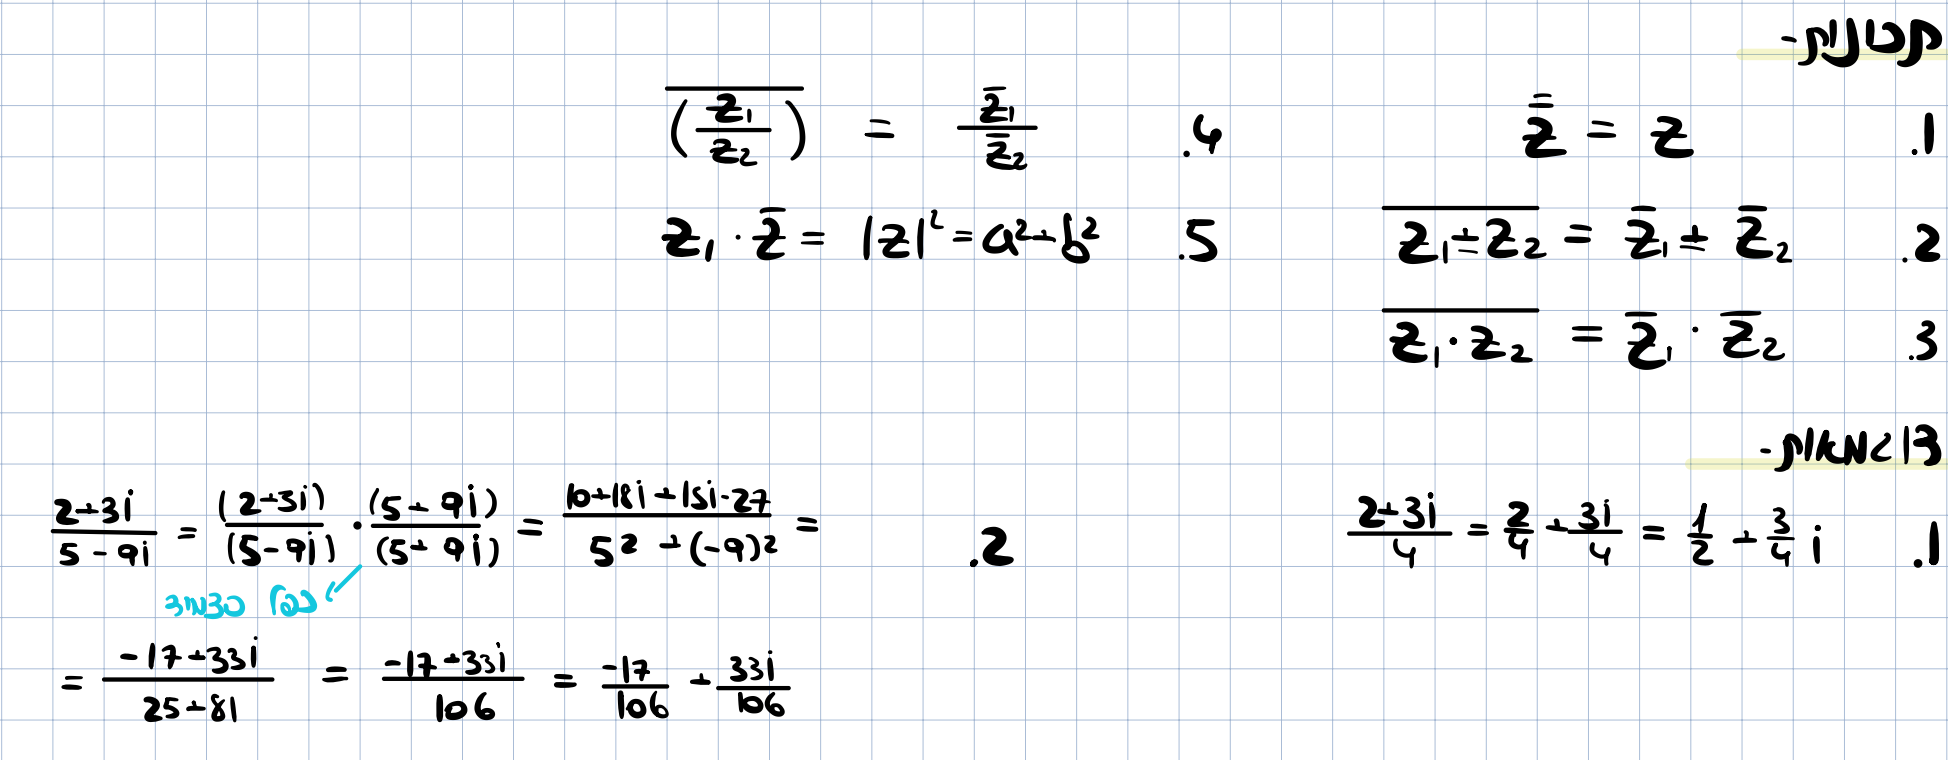 תכונות-
.1 z̿ = z
.2 \overline{z₁ ± z₂} = z̄₁ ± z̄₂
.3 \overline{z₁ · z₂} = z̄₁ · z̄₂
.4 \overline{(z₁/z₂)} = z̄₁/z̄₂
.5 z₁ · z̄ = |z|² = a²+b²
דוגמאות-
.1 (2+3i)/4 = 2/4 + 3i/4 = 1/2 + 3/4 i
.2 (2+3i)/(5-9i) = (2+3i)/(5-9i) · (5+9i)/(5+9i) = (10+18i+15i-27)/(5²+(-9)²) =
כפל
= (-17+33i)/(25+81) = (-17+33i)/106 = -17/106 + 33i/106